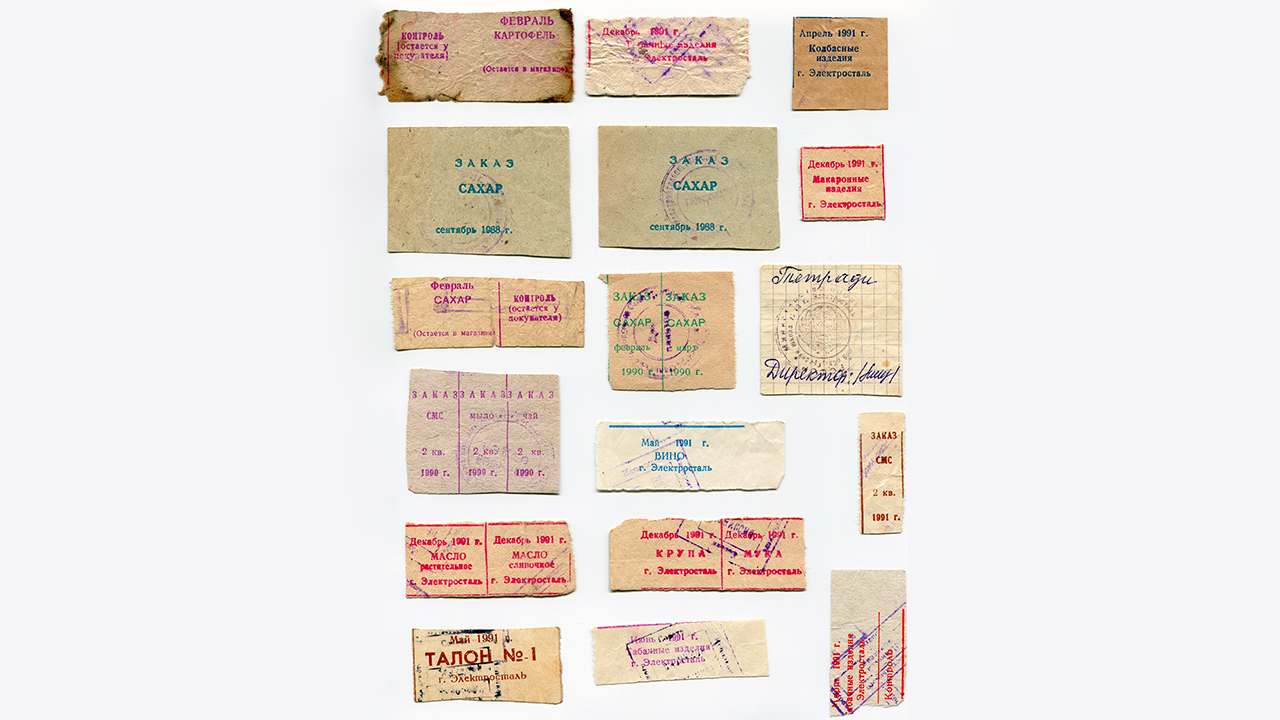 КОНТРОЛЬ
(остается у
покупателя)
ФЕВРАЛЬ
КАРТОФЕЛЬ
(Остается в магазине)
Декабрь 1991 г.
изделия
г. Электросталь
Апрель 1991 г.
Колбасные
изделия
г. Электросталь
ЗАКАЗ
САХАР
сентябрь 1988 г.
ЗАКАЗ
САХАР
сентябрь 1988 г.
Декабрь 1991 г.
Макаронные
изделия
г. Электросталь
Февраль
САХАР
(Остается в магазине)
КОНТРОЛЬ
(остается у
покупателя)
ЗАКАЗ
САХАР
февраль
1990 г.
ЗАКАЗ
САХАР
март
1990 г.
Тетради
Директор:
ЗАКАЗ
СМС
2 кв.
1990 г.
ЗАКАЗ
мыло
2 кв.
1990 г.
ЗАКАЗ
чай
2 кв.
1990 г.
Май 1991 г.
ВИНО
г. Электросталь
ЗАКАЗ
СМС
2 кв.
1991 г.
Декабрь 1991 г.
МАСЛО
растительное
г. Электросталь
Декабрь 1991 г.
МАСЛО
сливочное
г. Электросталь
Декабрь 1991 г.
КРУПА
г. Электросталь
Декабрь 1991 г.
МУКА
г. Электросталь
Май 1991 г.
ТАЛОН № 1
г. Электросталь
Июнь 1991 г.
изделия
г. Электросталь
1991 г.
изделия
Электросталь
Контроль